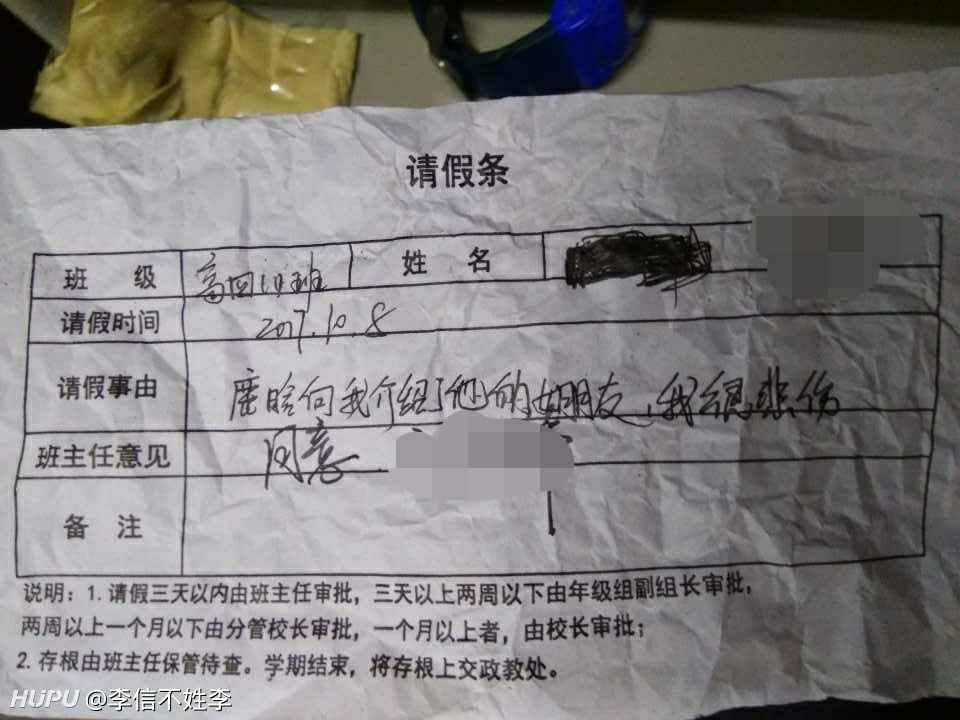 请假条
班 级 高四10班 姓 名
请假时间 2017.10.8
请假事由 鹿晗向我介绍了他的女朋友，我很悲伤
班主任意见 同意
备 注
说明：1.请假三天以内由班主任审批，三天以上两周以下由年级组副组长审批，
两周以上一个月以下由分管校长审批，一个月以上者，由校长审批；
2.存根由班主任保管待查。学期结束，将存根上交政教处。
HUPU @李信不姓李